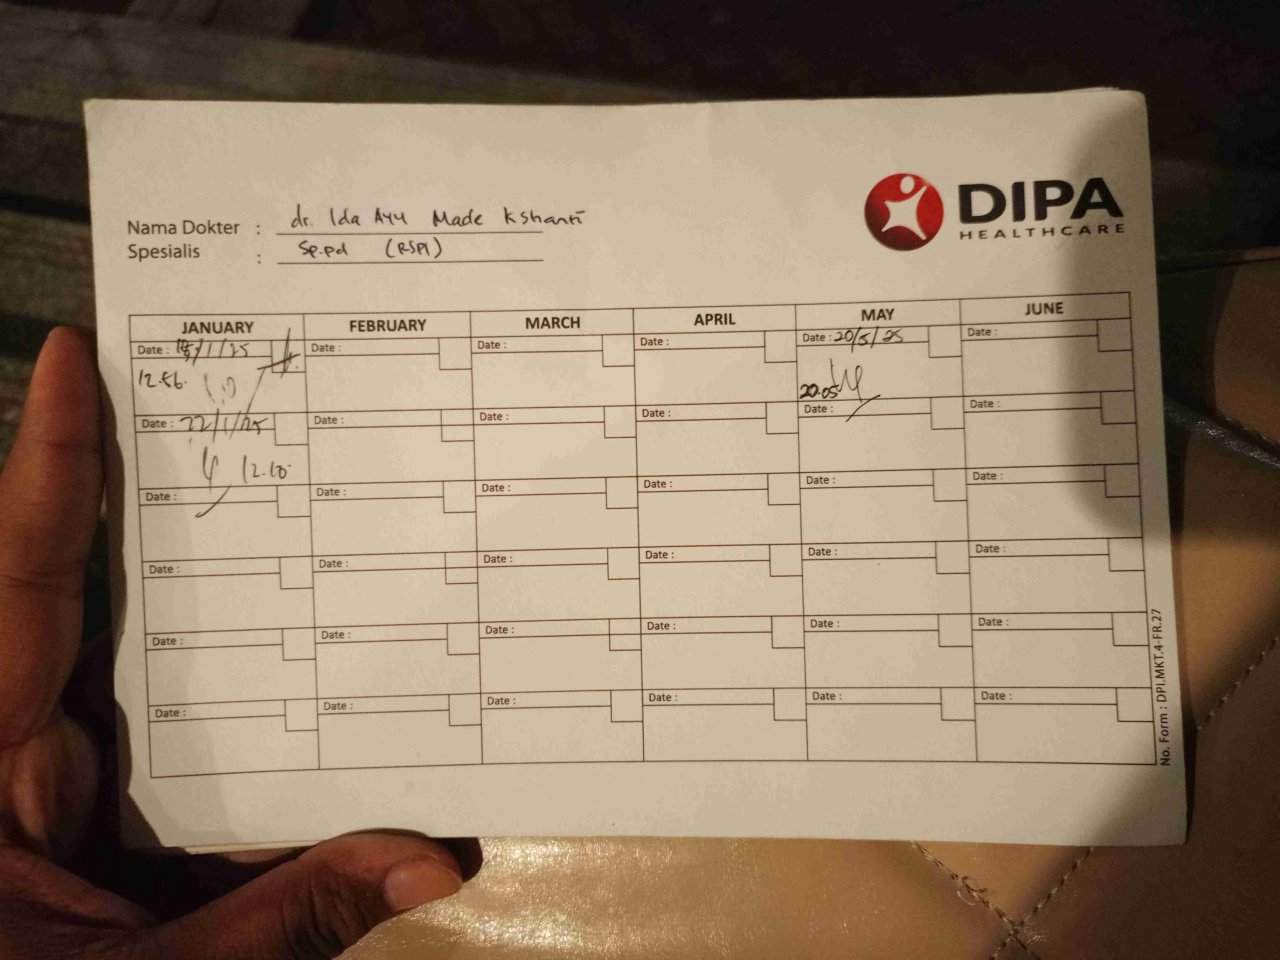 DIPA
HEALTHCARE
Nama Dokter : dr. Ida Ayu Made Kshanti
Spesialis : Sp.pd (RSPI)
JANUARY FEBRUARY MARCH APRIL MAY JUNE
Date : /1/25 Date : Date : Date : Date : 20/5/25 Date :
12.56. 20.05
Date : 22/1/25 Date : Date : Date : Date : Date :
12.10
Date : Date : Date : Date : Date : Date :
Date : Date : Date : Date : Date : Date :
Date : Date : Date : Date : Date : Date :
Date : Date : Date : Date : Date : Date :
No. Form : DPI.MKT.4-FR.27